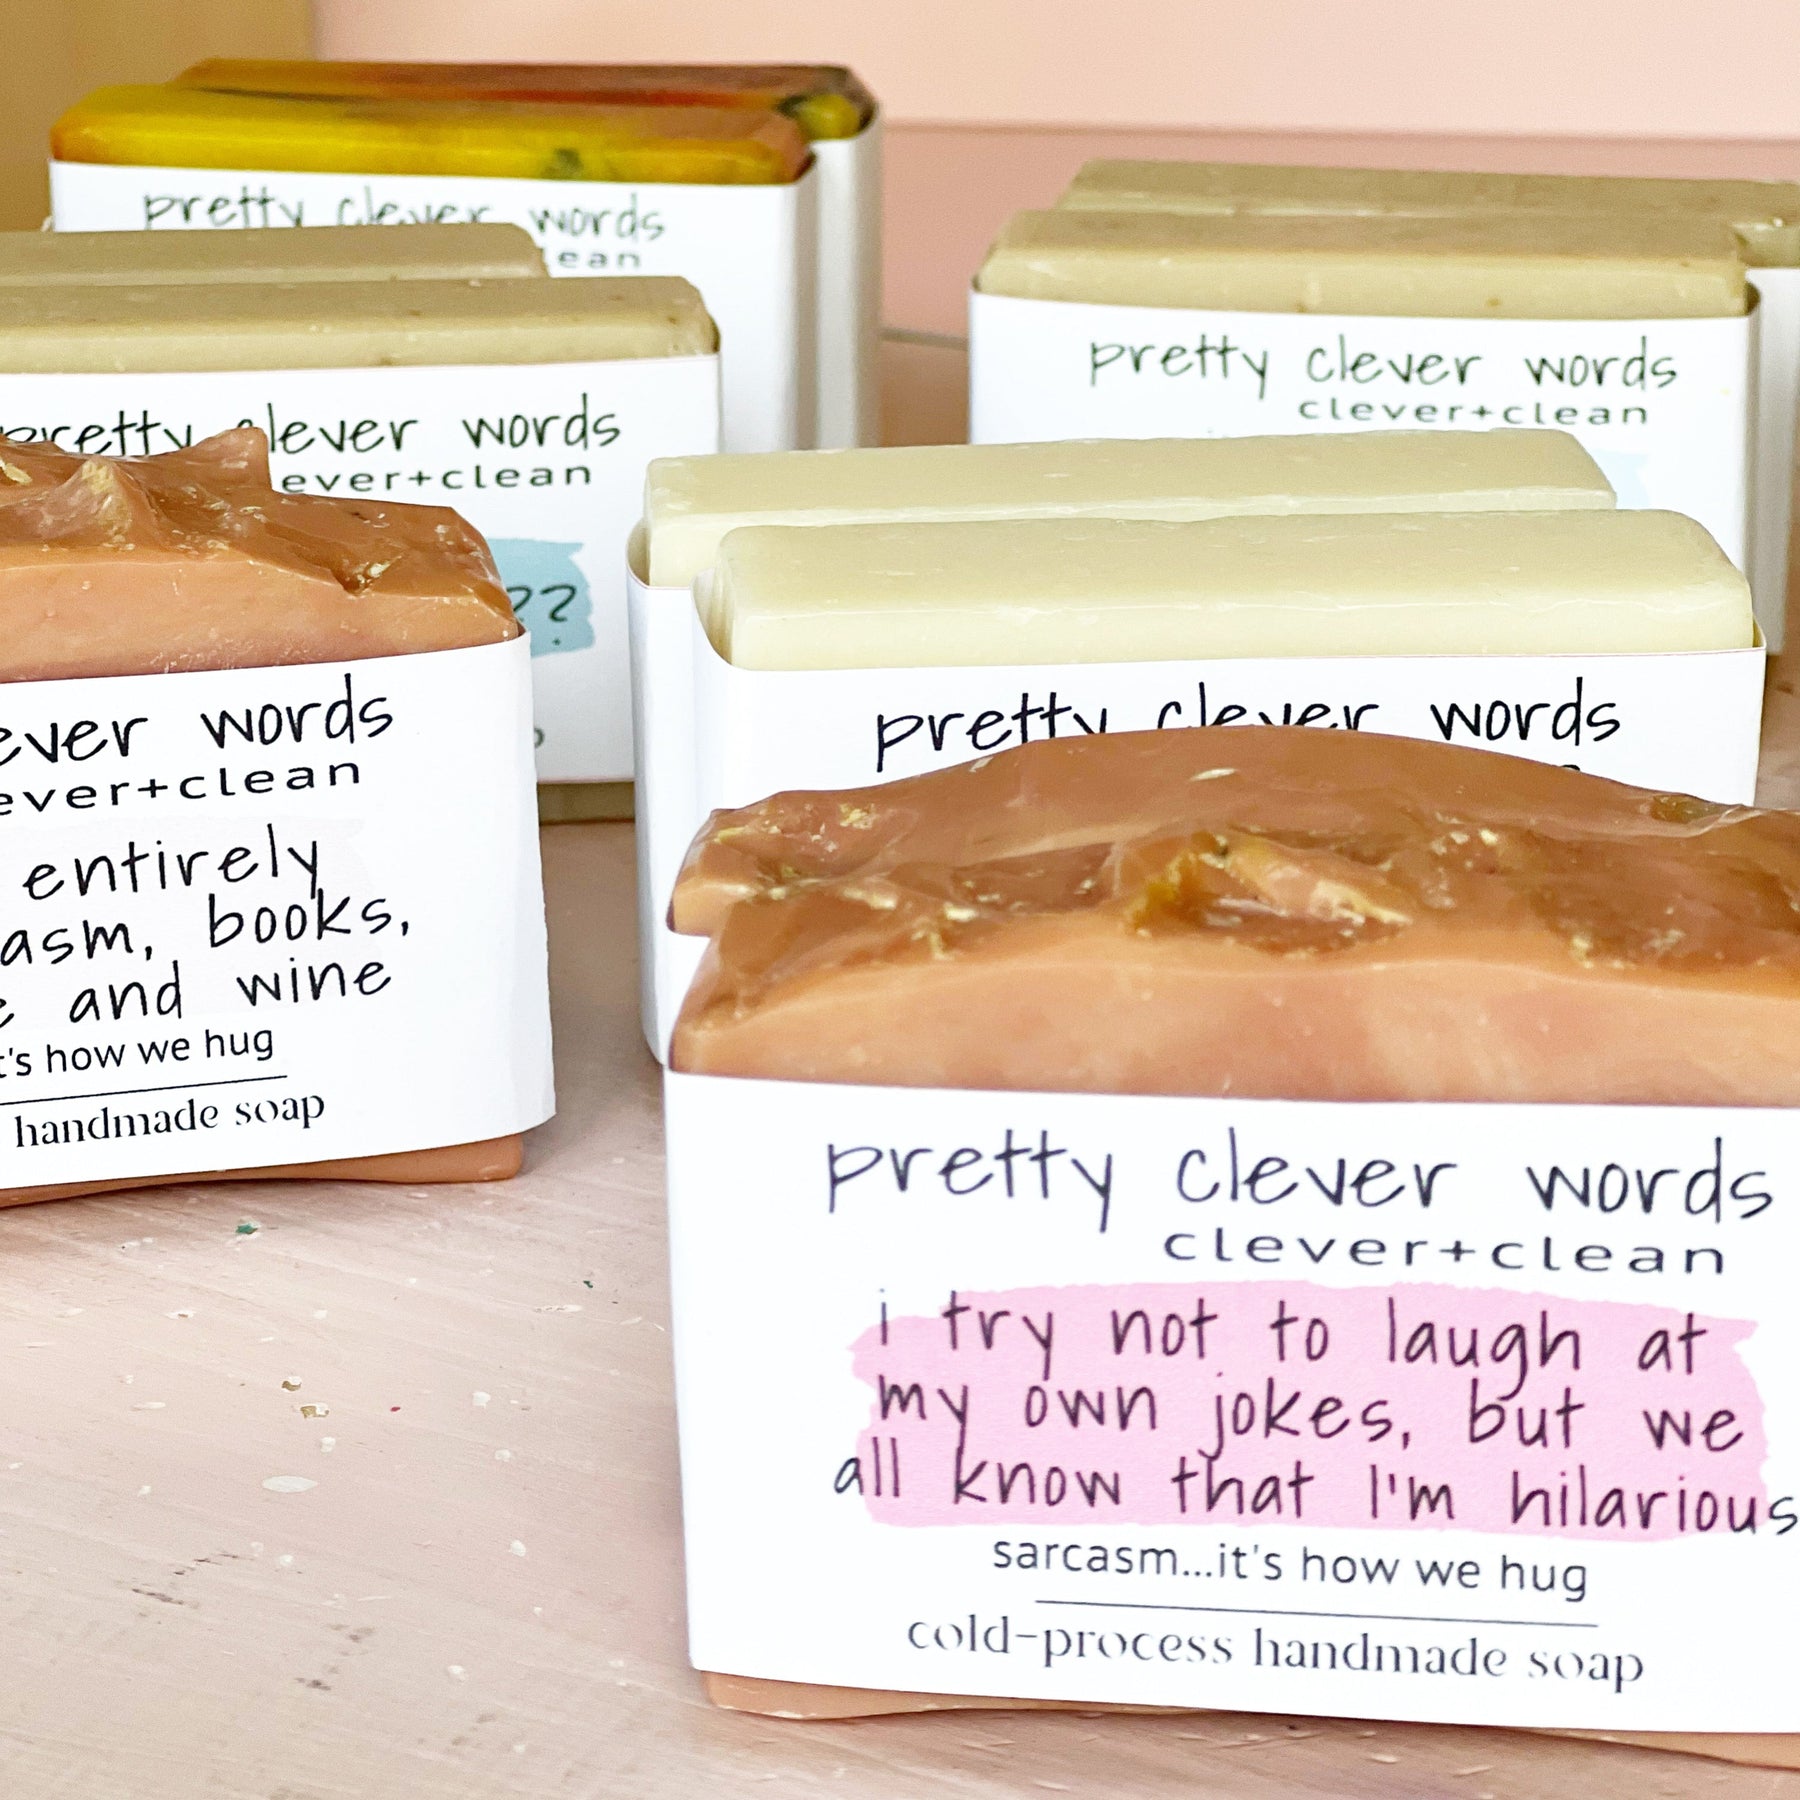 pretty clever words
pretty clever words
clever+clean
pretty clever words
ever+clean
??
pretty clever words
words
ever+clean
entirely
books,
and wine
how we hug
handmade soap
pretty clever words
clever+clean
i try not to laugh at
my own jokes, but we
all know that I'm hilarious
sarcasm...it's how we hug
cold-process handmade soap